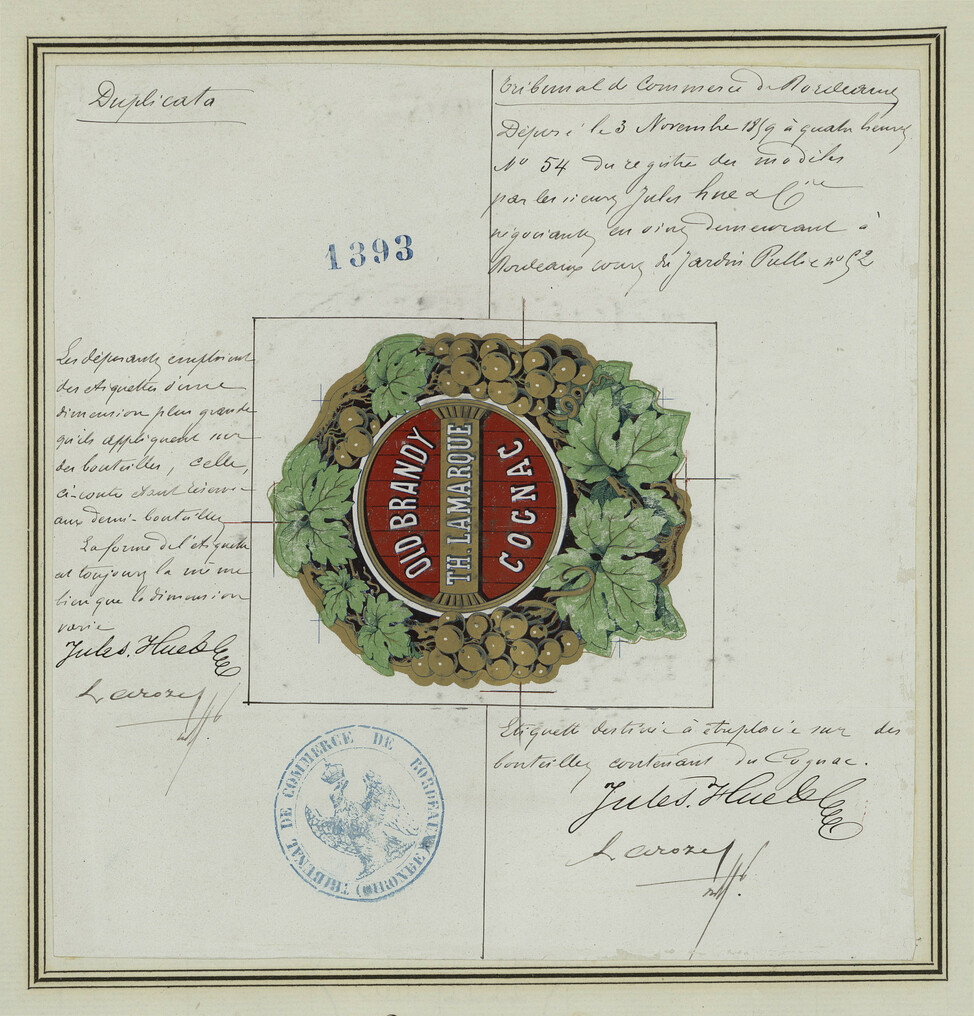 Duplicata
Tribunal de Commerce de Bordeaux
Déposé le 3 Novembre 1859 à quatre heures
No 54 du registre des modèles
par les sieurs Jules Hue & Cie
négociants en vins demeurant à
Bordeaux cours du Jardin Public no 52
1393
Les déposants emploient
des étiquettes d'une
dimension plus grande
qu'ils appliquent sur
des bouteilles, celle,
ci-contre étant réservée
aux demi-bouteilles
La forme de l'étiquette
est toujours la même
bien que la dimension
varie
Jules. Hue &
Laroze
OLD BRANDY
TH. LAMARQUE
COGNAC
Etiquette destinée à être employée sur des
bouteilles contenant du Cognac.
Jules. Hue &
Laroze
TRIBUNAL DE COMMERCE DE BORDEAUX (GIRONDE)